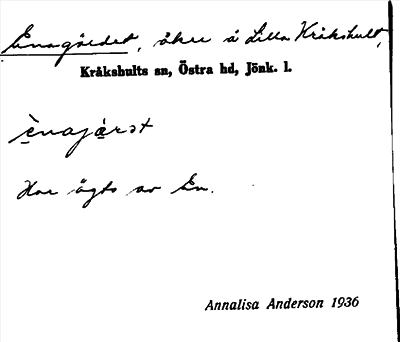 Enagärdet, åker å Lilla Kråkshult,
Kråkshults sn, Östra hd, Jönk. l.
Har ägts av En.
Annalisa Anderson 1936